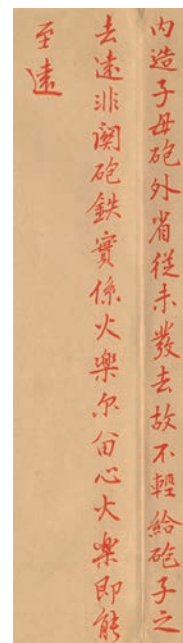 内造子母砲外省從未發去故不輕給砲子之
去遠非関砲鉄實係火藥尔留心火藥即能
至遠